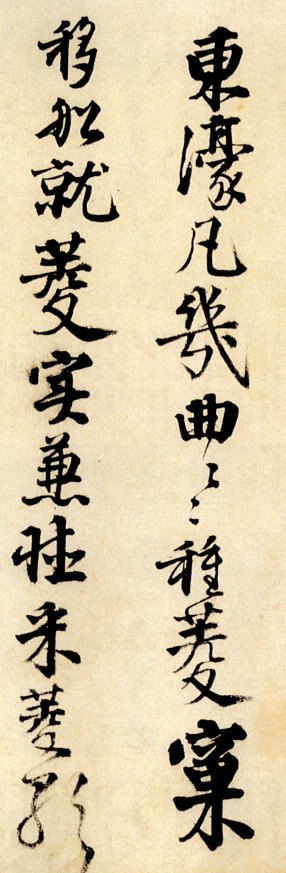 東濠凡幾曲々種菱窠
移船就菱實兼聽采菱歌